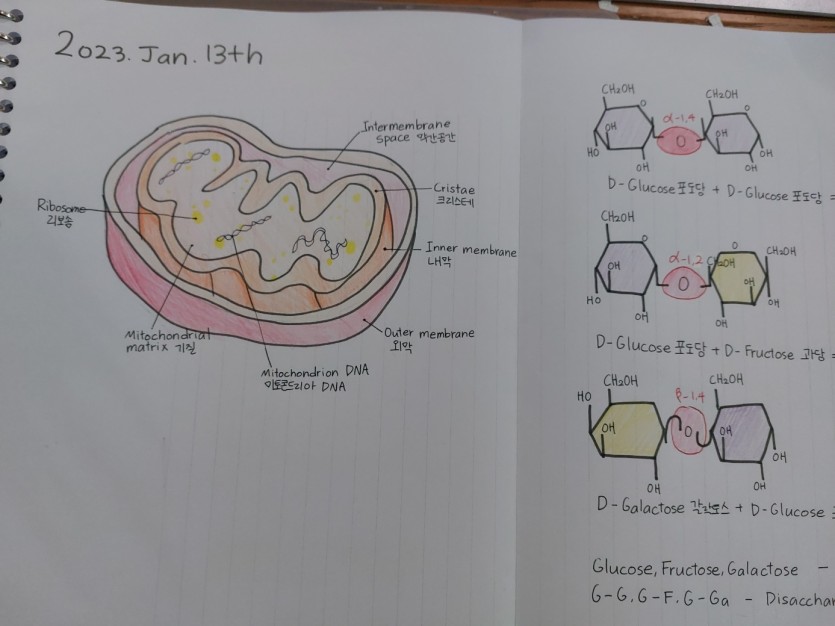 2023. Jan. 13th
Intermembrane
space 막간공간
Cristae
크리스테
Ribosome
리보솜
Inner membrane
내막
Outer membrane
외막
Mitochondrial
matrix 기질
Mitochondrion DNA
미토콘드리아 DNA
CH₂OH
CH₂OH
O
O
α-1,4
OH
O
OH
HO
OH
OH
OH
D-Glucose 포도당 + D-Glucose 포도당 =
CH₂OH
O
O
CH₂OH
α-1,2
CH₂OH
OH
O
OH
HO
OH
OH
OH
D-Glucose 포도당 + D-Fructose 과당 =
CH₂OH
CH₂OH
HO
β-1.4
OH
O
OH
OH
OH
OH
D-Galactose 갈락토스 + D-Glucose
Glucose, Fructose, Galactose -
G-G. G-F. G-Ga - Disacchar